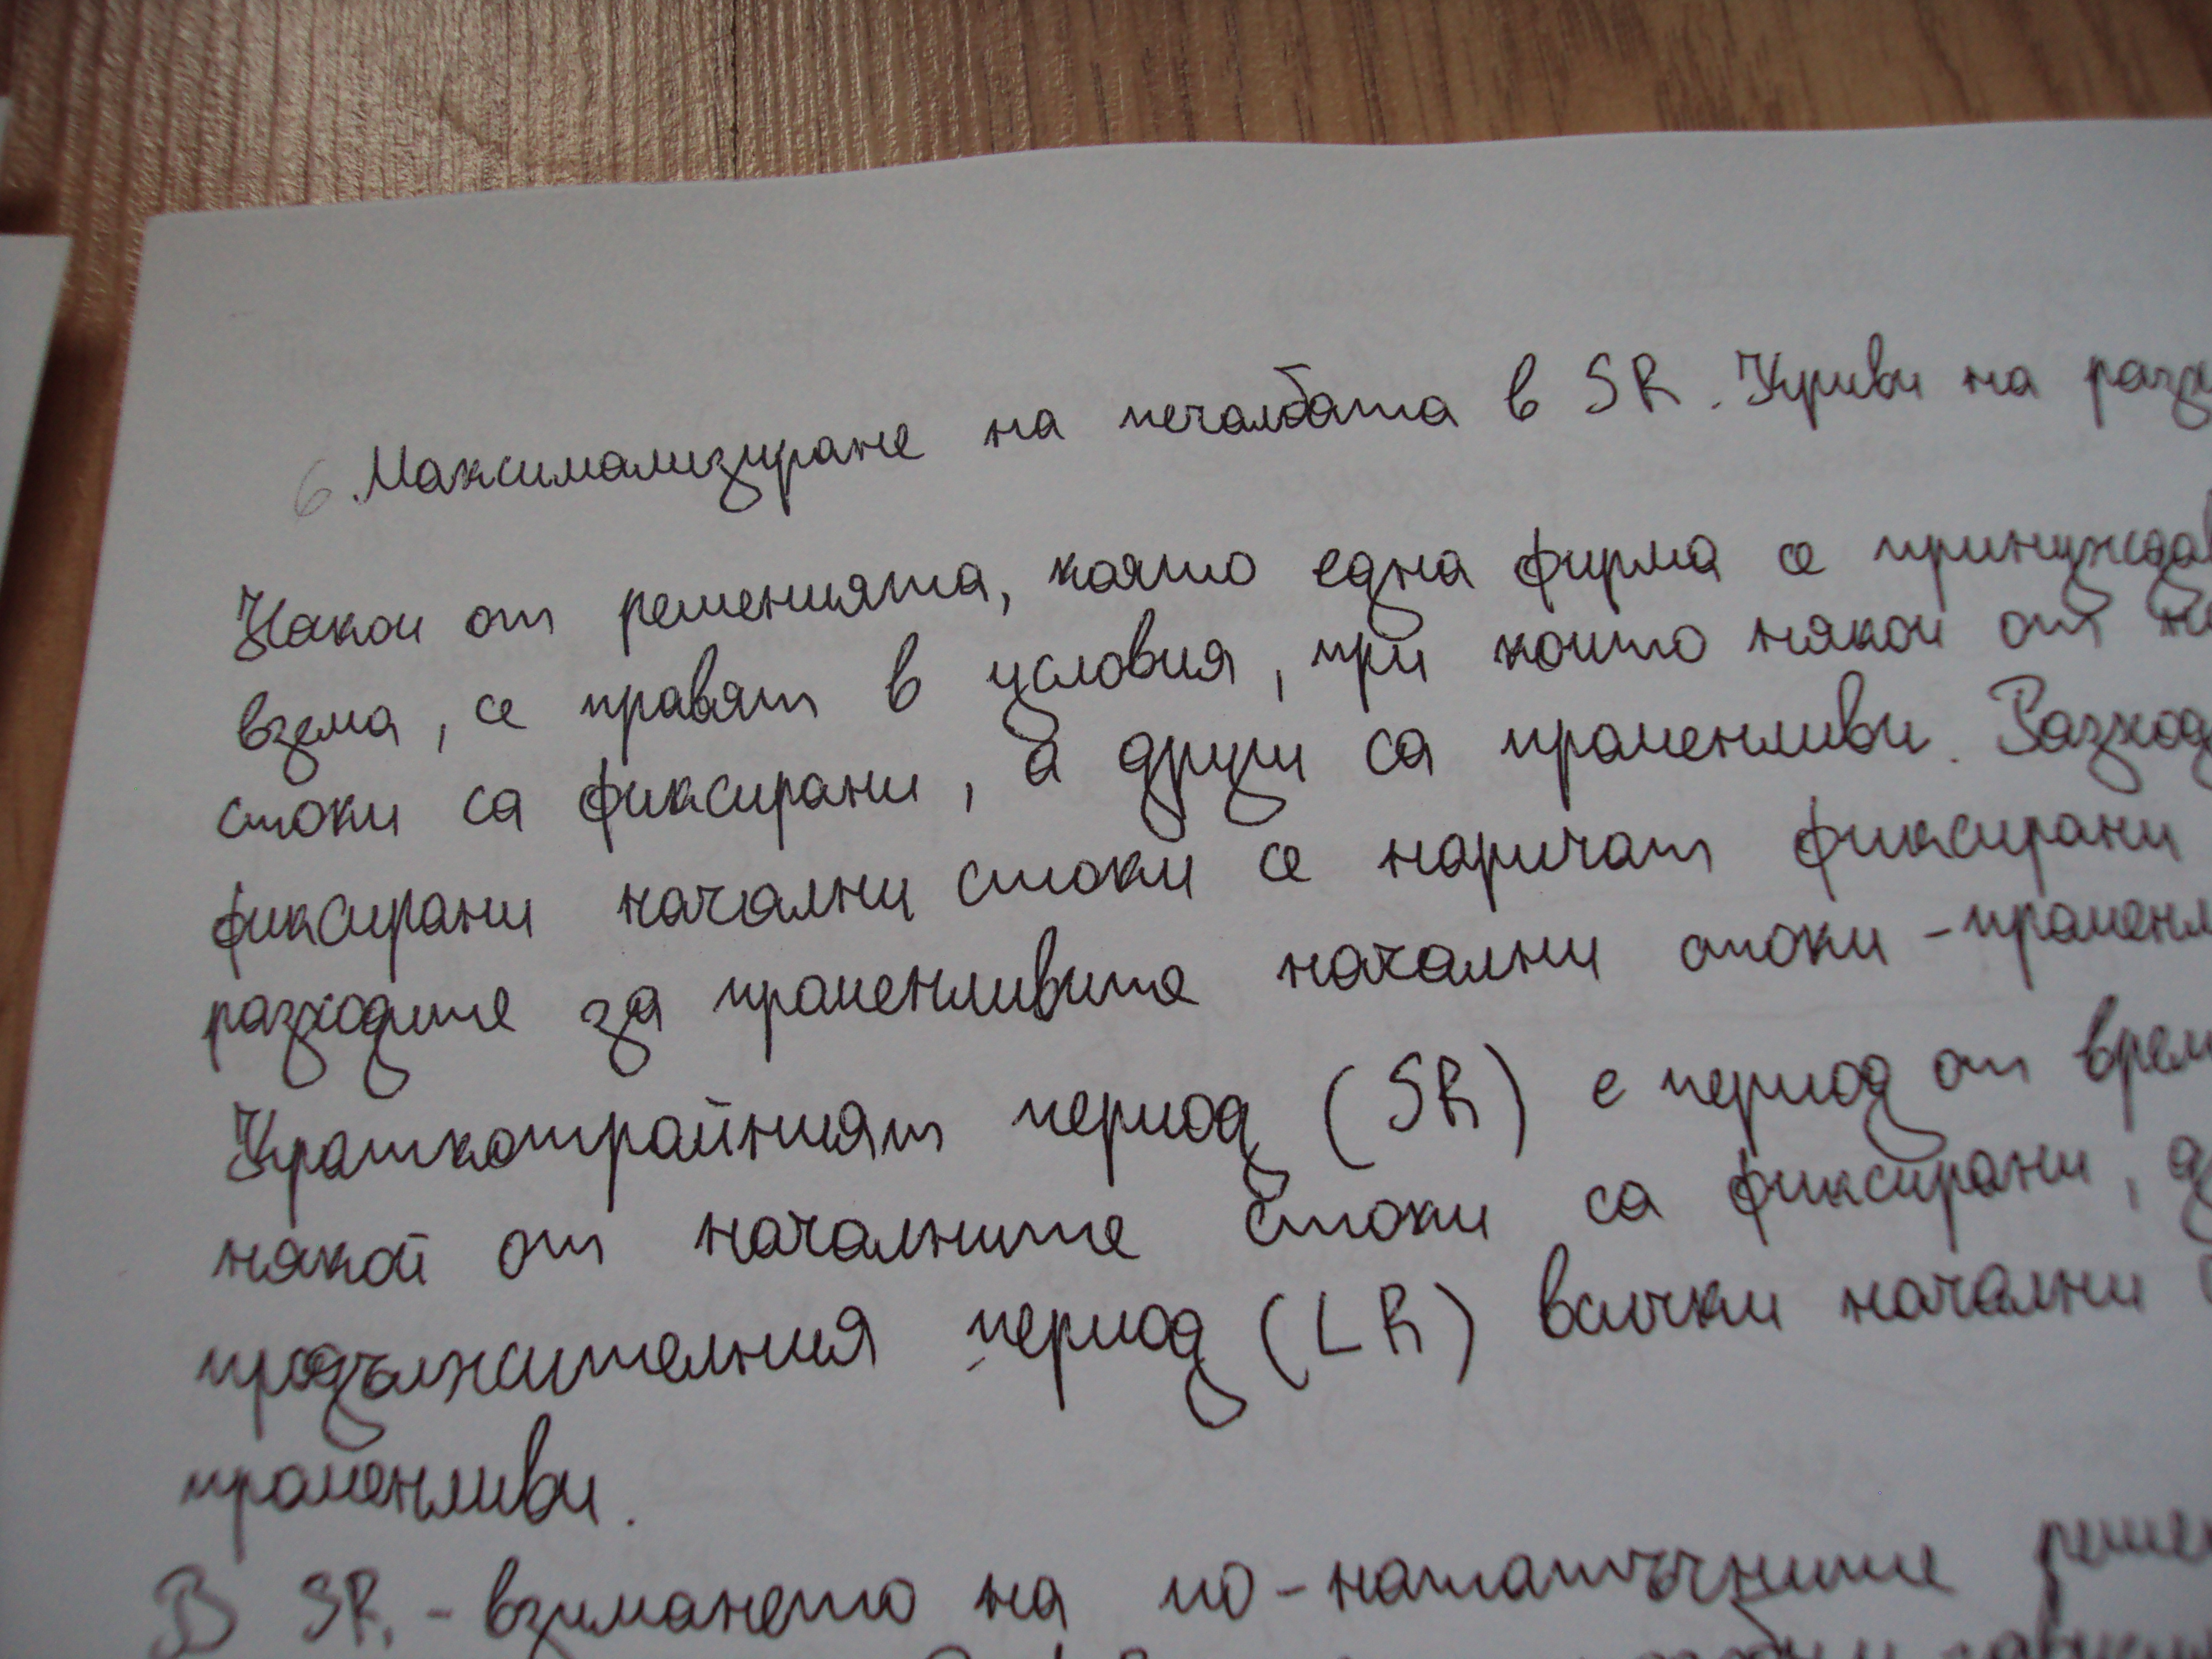 6. Максимализиране на печалбата в SR. Криви на разх
Някои от решенията, които една фирма се принуждав
взема, се правят в условия, при които някои от на
стоки са фиксирани, а други са променливи. Разход
фиксирани начални стоки се наричат фиксирани
разходите за променливите начални стоки - променл
Краткотрайният период (SR) е период от врем
някой от началните стоки са фиксирани, д
продължителния период (LR) всички начални
променливи.
В SR. - взимането на по-нататъчните реше